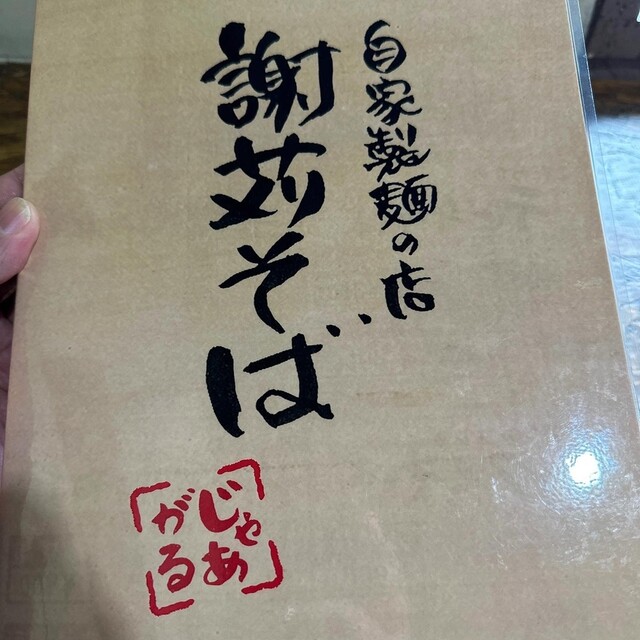 自家製麺の店
謝苅そば
じゃあ
がる